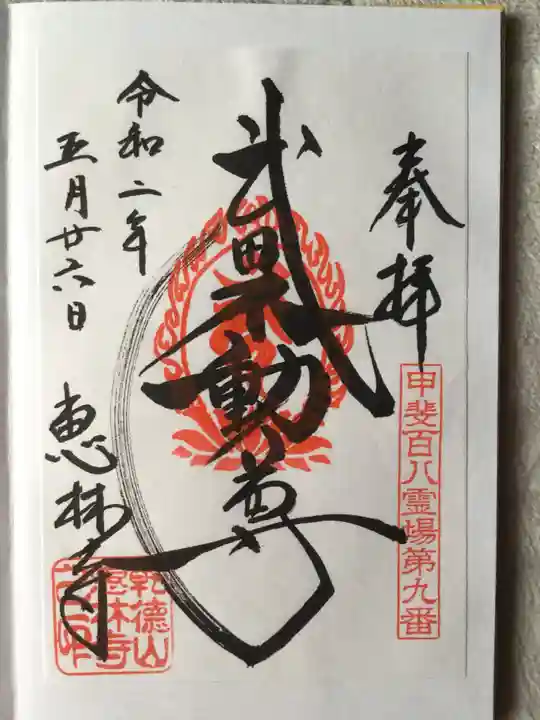 奉拝
甲斐百八霊場第九番
武田不動尊
令和二年
五月廿六日
恵林寺
乾徳山
恵林寺